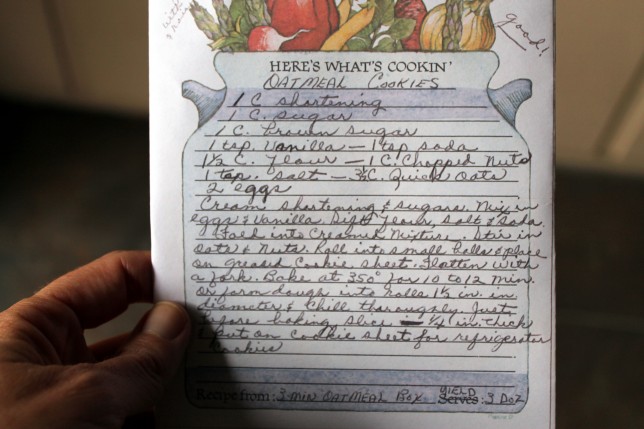 good!
HERE'S WHAT'S COOKIN'
OATMEAL COOKIES
1 C shortening
1 C. sugar
1 C. brown sugar
1 tsp. Vanilla — 1 tsp soda
1½ C. flour — 1 C. Chopped Nuts
1 tsp. salt — 3 C. Quick Oats
2 eggs
Cream shortening & sugars. Mix in
eggs & Vanilla. Sift flour, salt & soda
Fold into Creamed Mixture. Stir in
Oats & Nuts. Roll into small balls & place
on greased Cookie sheet. Flatten with
a fork. Bake at 350° for 10 to 12 min.
or form dough into rolls 1½ in. in
diameter & Chill thoroughly. Just
before baking slice — ¼ in. thick
& put on Cookie sheet for refrigerator
Cookies
Recipe from: 3-MIN OATMEAL BOX YIELD Serves: 3 Doz